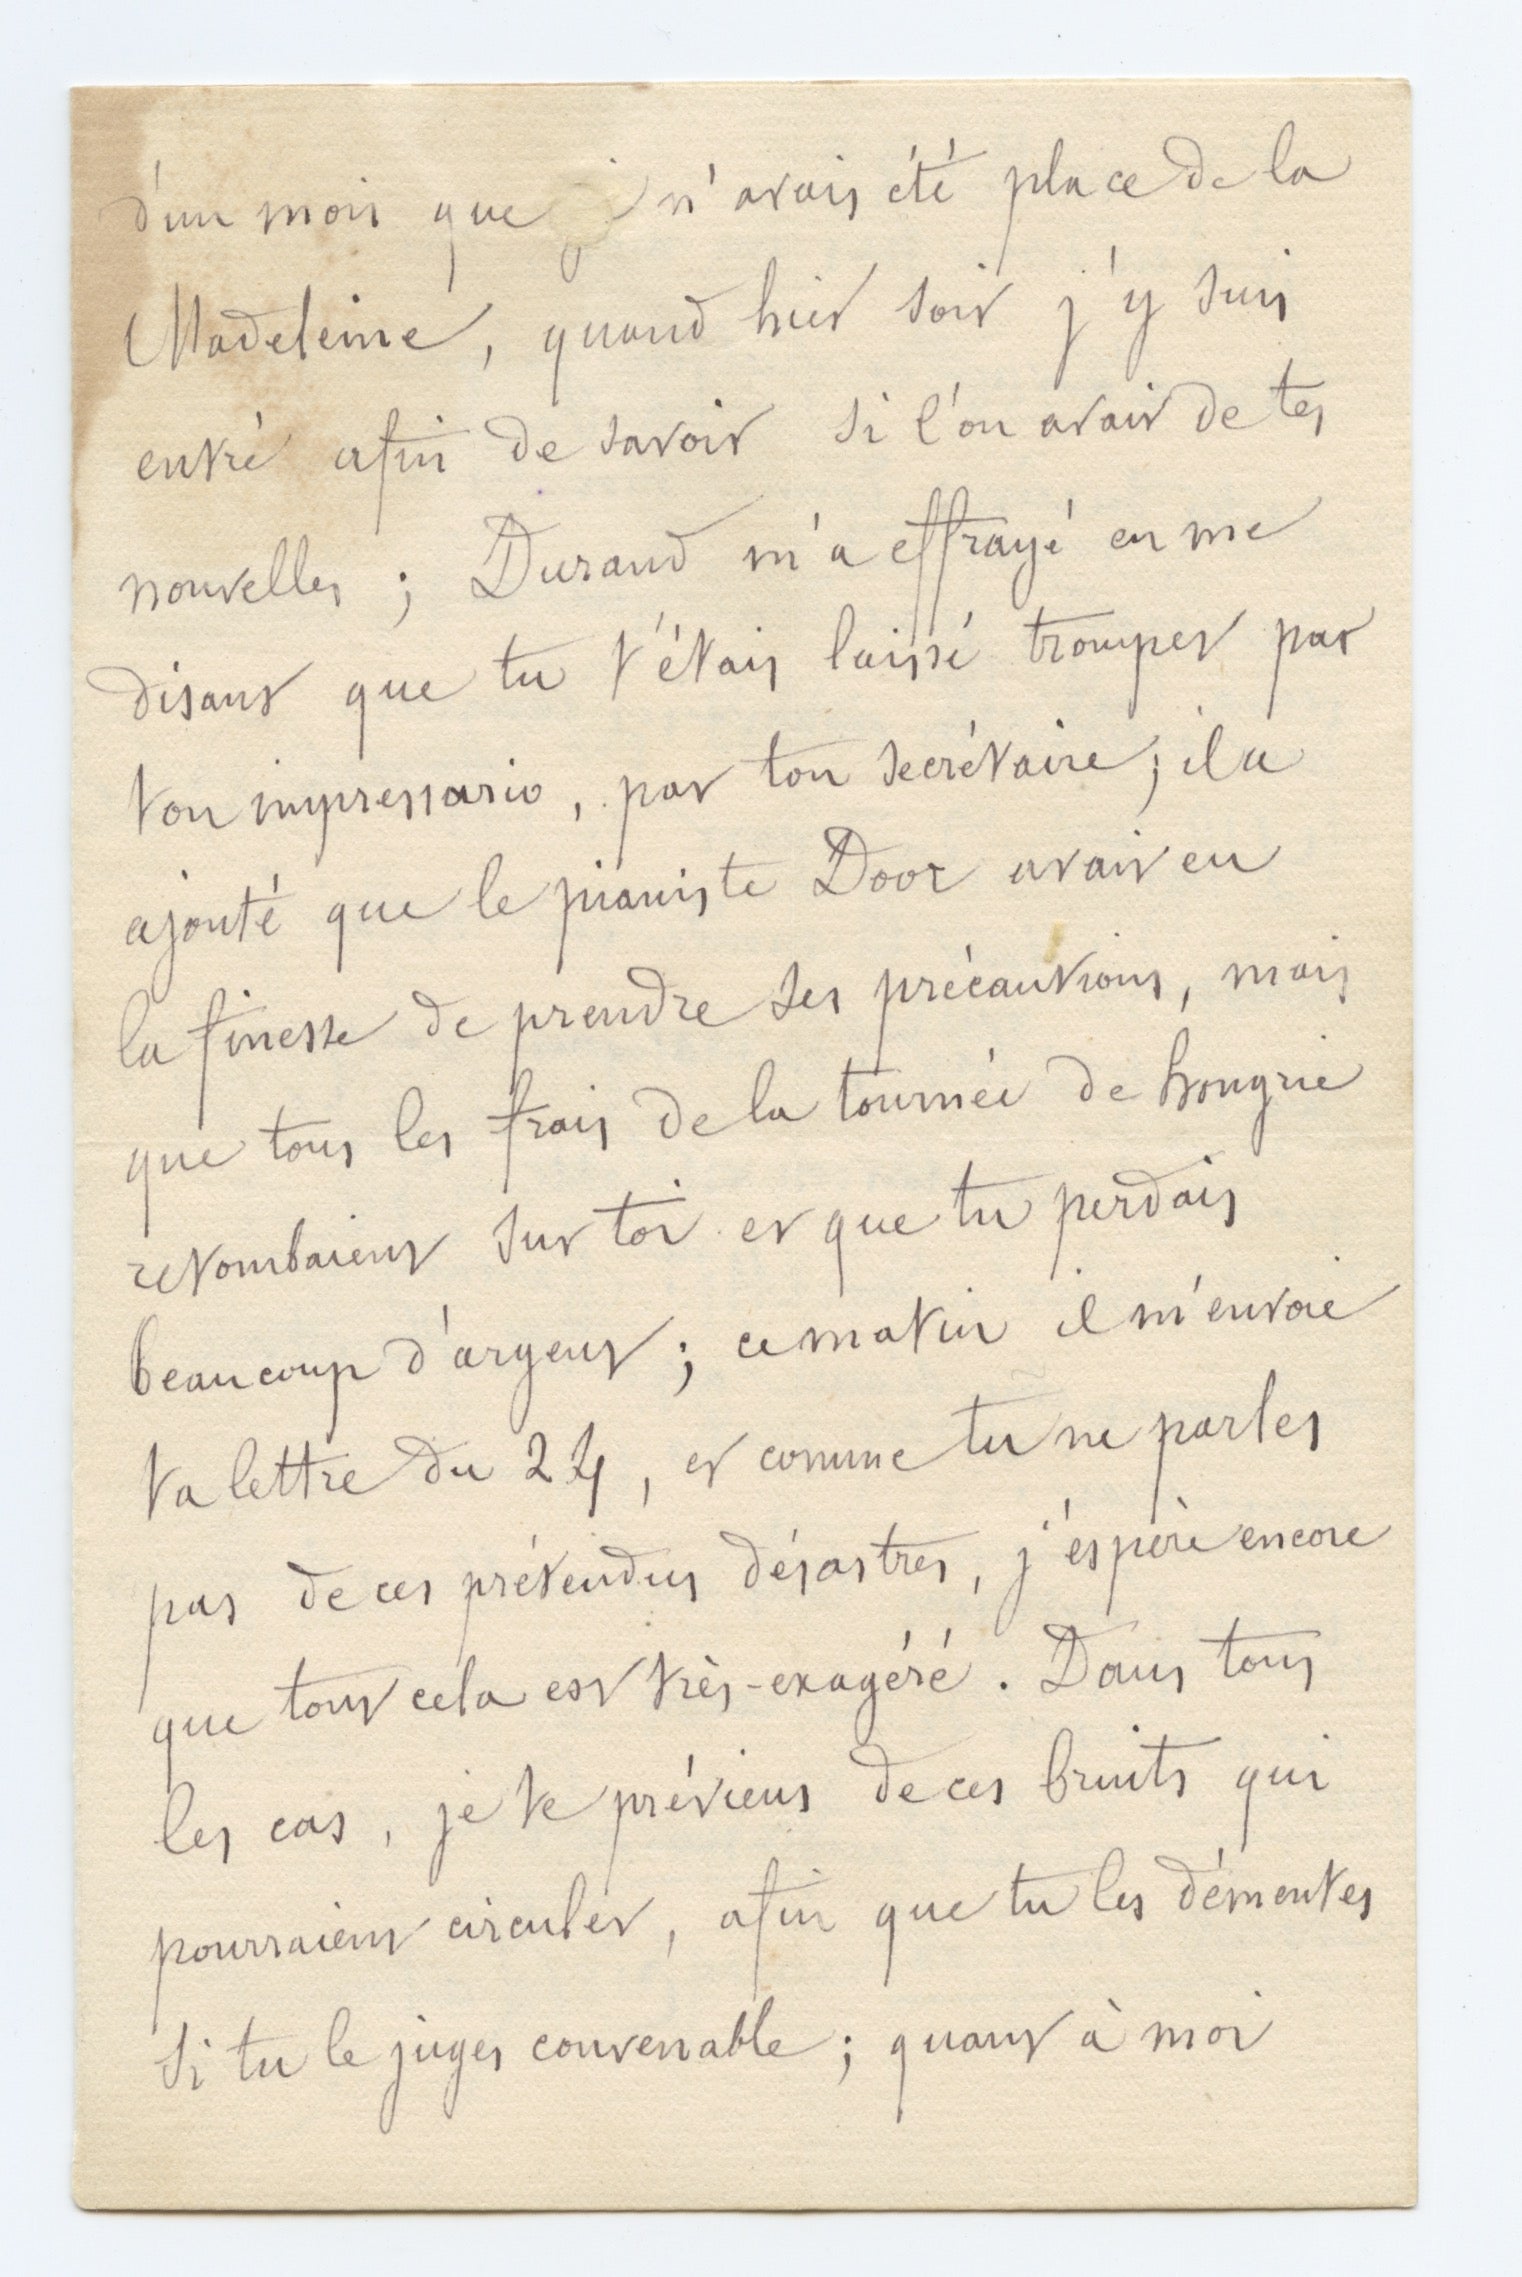 d'un mois que je n'avais été place de la
Madeleine, quand hier soir j'y suis
entré afin de savoir si l'on avait de tes
nouvelles ; Durand m'a effrayé en me
disant que tu t'étais laissé tromper par
ton impressario, par ton secrétaire ; il a
ajouté que le pianiste Door avait eu
la finesse de prendre ses précautions, mais
que tous les frais de la tournée de hongrie
retombaient sur toi et que tu perdais
beaucoup d'argent ; ce matin il m'envoie
ta lettre du 24, et comme tu ne parles
pas de ces prétendus désastres, j'espère encore
que tout cela est très-exagéré. Dans tous
les cas, je te préviens de ces bruits qui
pourraient circuler, afin que tu les démentes
si tu le juges convenable ; quant à moi